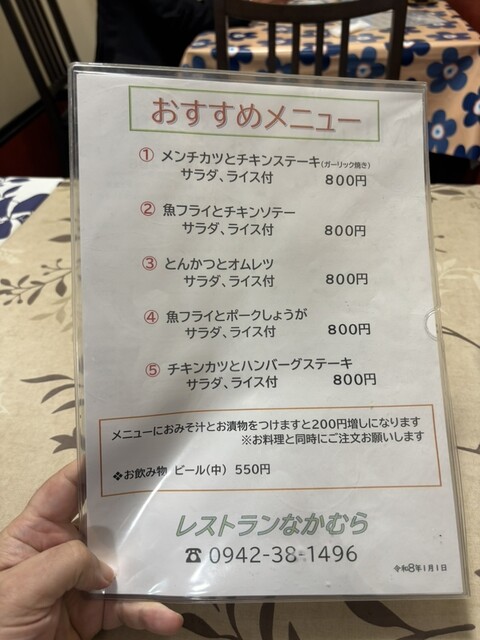 おすすめメニュー
① メンチカツとチキンステーキ(ガーリック焼き)
サラダ、ライス付 800円
② 魚フライとチキンソテー
サラダ、ライス付 800円
③ とんかつとオムレツ
サラダ、ライス付 800円
④ 魚フライとポークしょうが
サラダ、ライス付 800円
⑤ チキンカツとハンバーグステーキ
サラダ、ライス付 800円
メニューにおみそ汁とお漬物をつけますと200円増しになります
※お料理と同時にご注文お願いします
❖お飲み物 ビール(中) 550円
レストランなかむら
☎ 0942-38-1496
令和8年1月1日